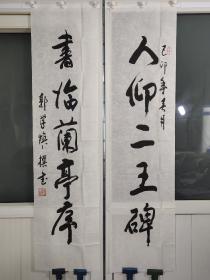 己卯年春月
人仰二王碑
書临蘭亭序
郭学焕撰書